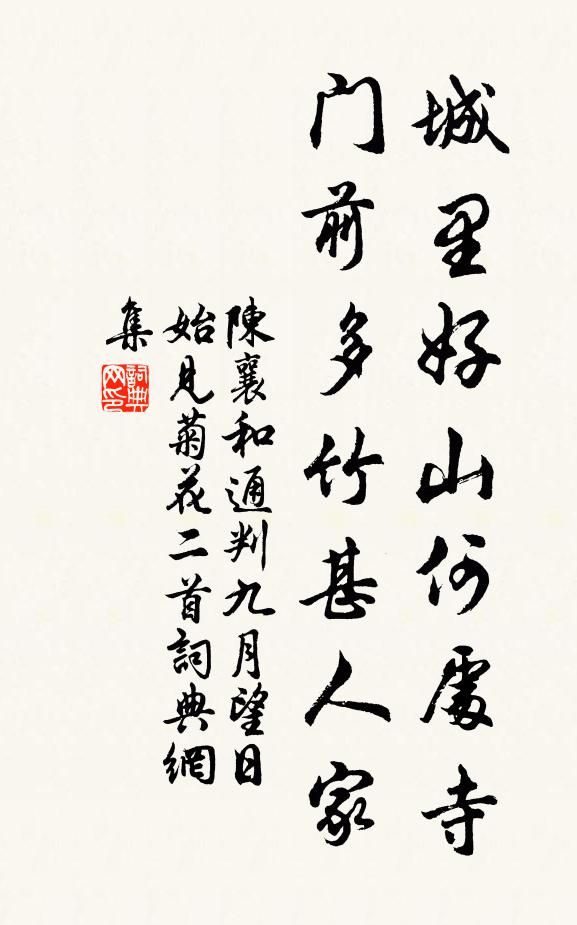 城里好山何處寺
门前多竹甚人家
陳襄和通判九月望日
始見菊花二首詞典網
集
詞典
网印